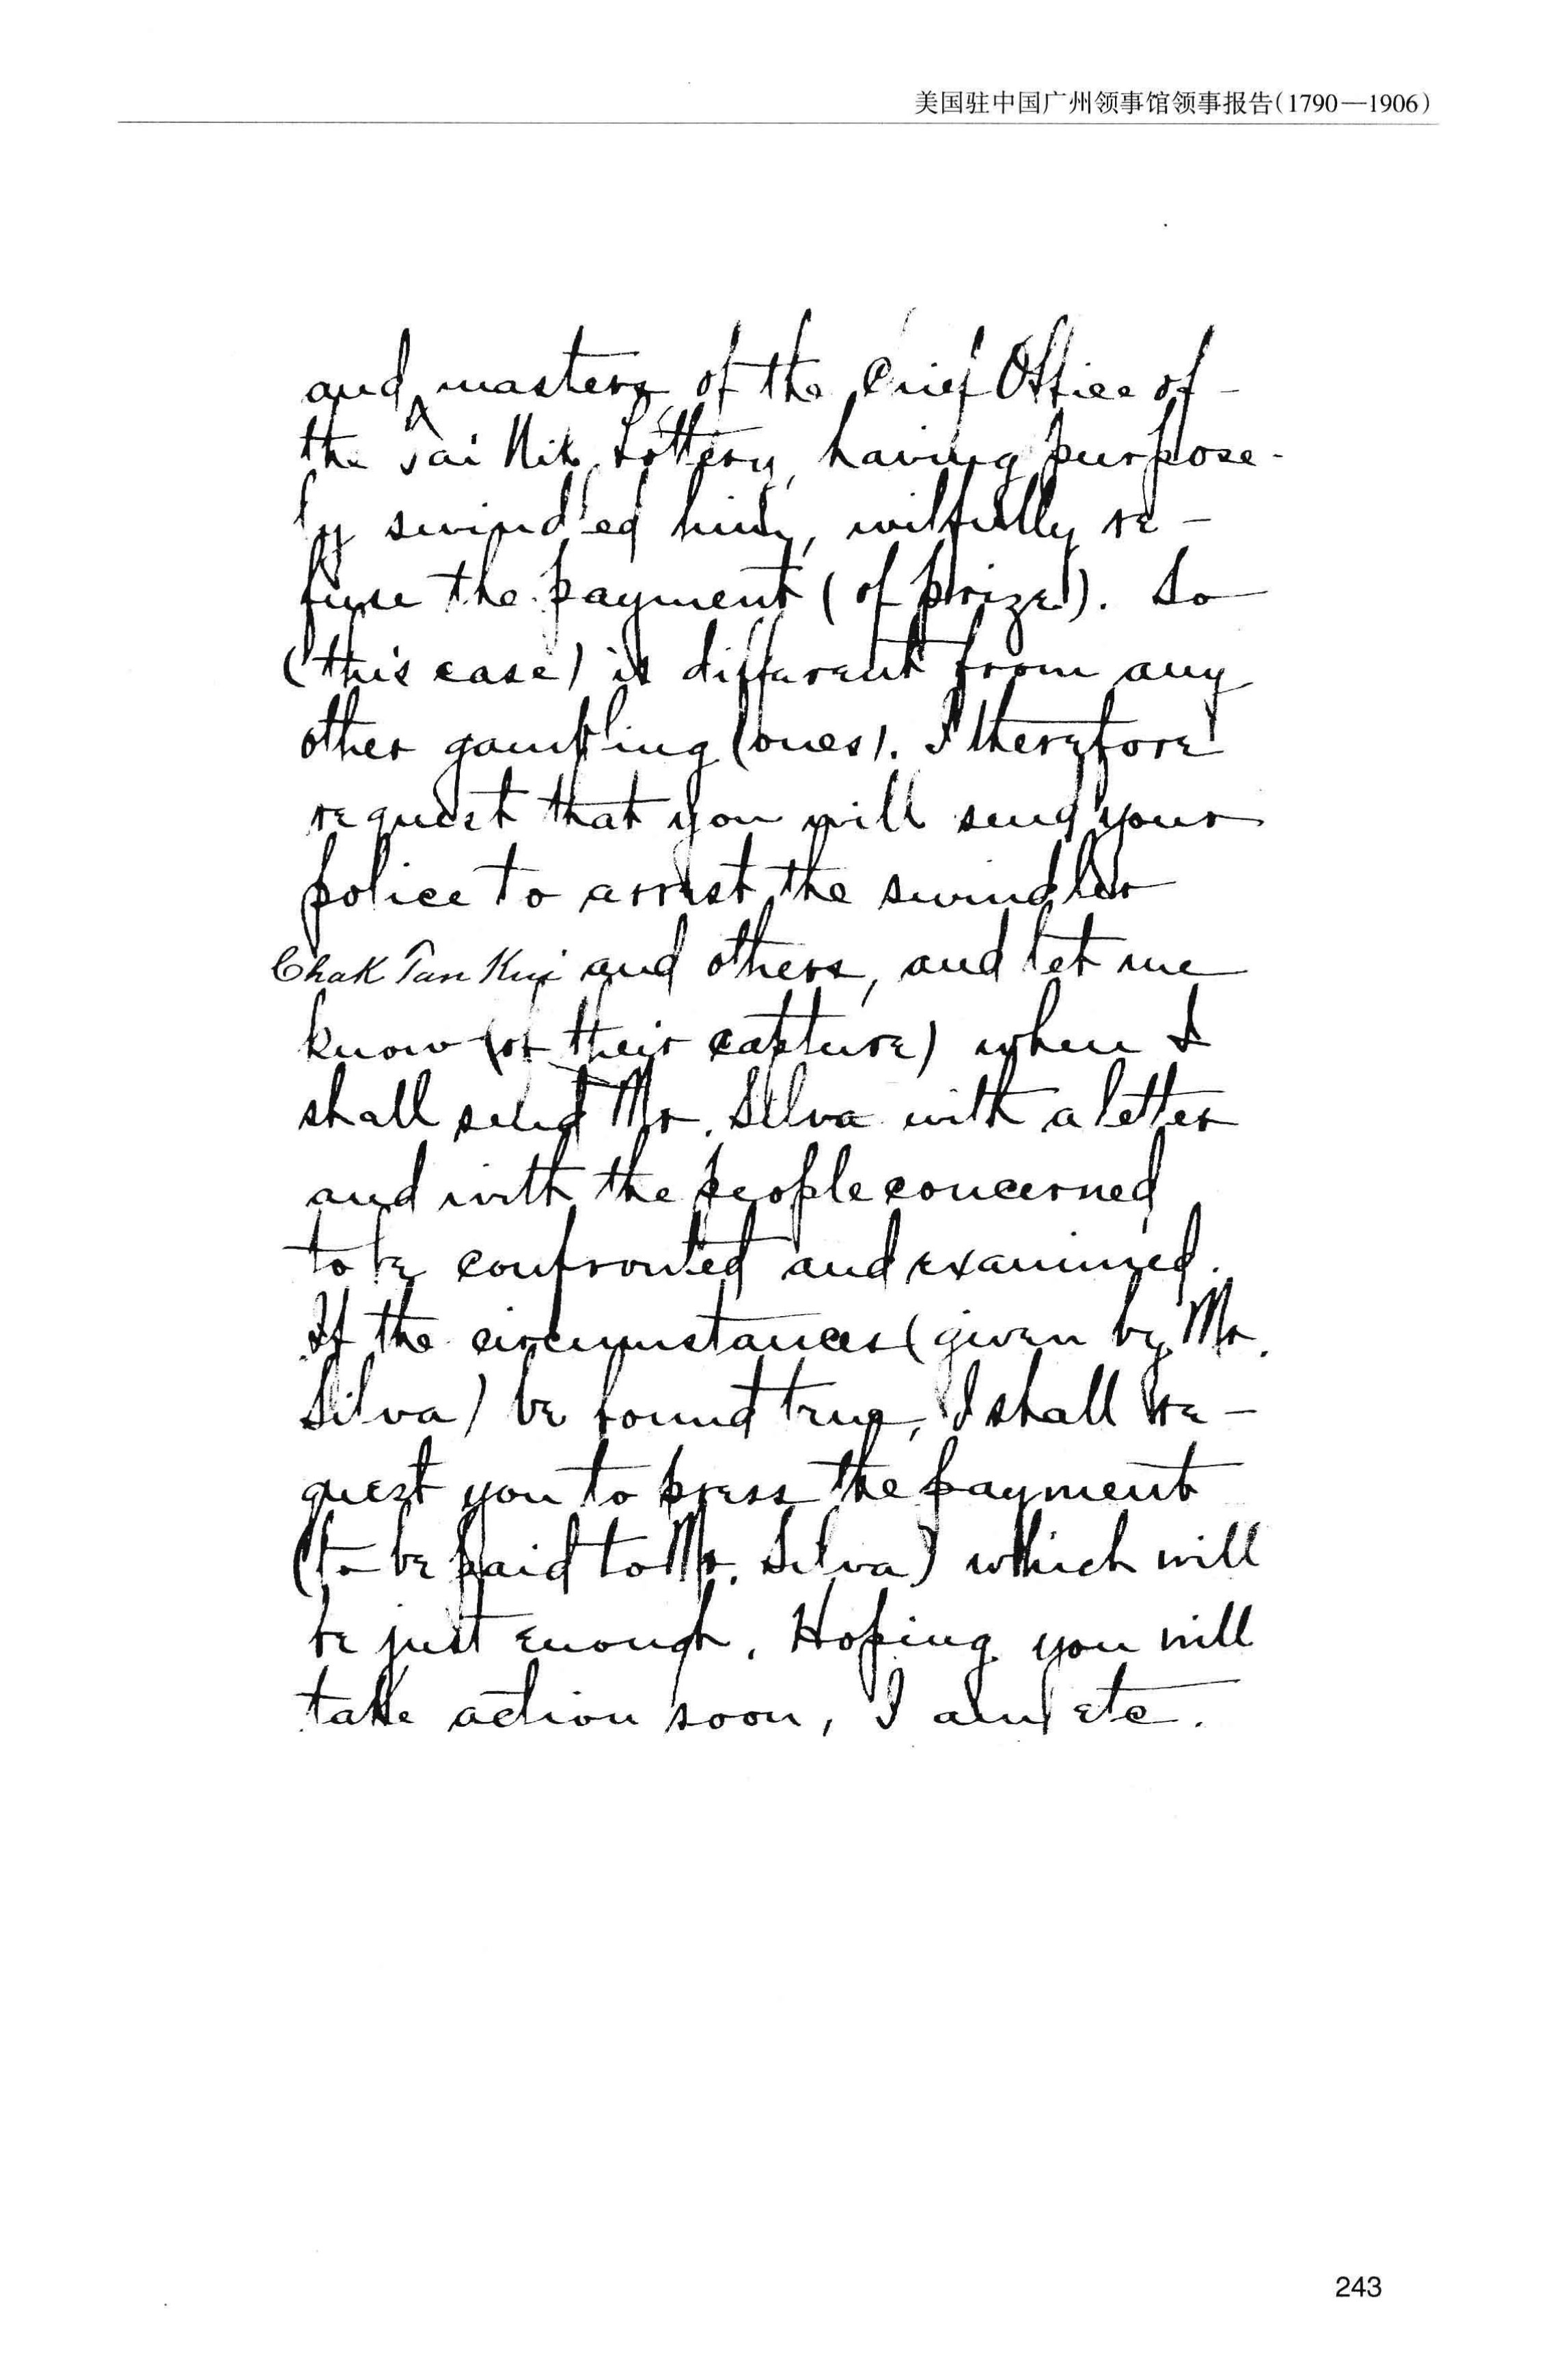 美国驻中国广州领事馆领事报告(1790—1906)
and masters of the Chief Office of
the Tai Hit Lottery, having purpose-
ly swindled him, wilfully re-
fuse the payment (of prize). So
(this case) is different from any
other gambling (ones). I therefore
request that you will send your
police to arrest the swindler
Chak Tan Kui and others, and let me
know (of their capture) when I
shall send Mr. Silva with a letter
and with the people concerned
to be confronted and examined.
If the circumstances (given by Mr.
Silva) be found true, I shall re-
quest you to press the payment
(to be paid to Mr. Silva) which will
be just enough. Hoping you will
take action soon, I am etc.
243